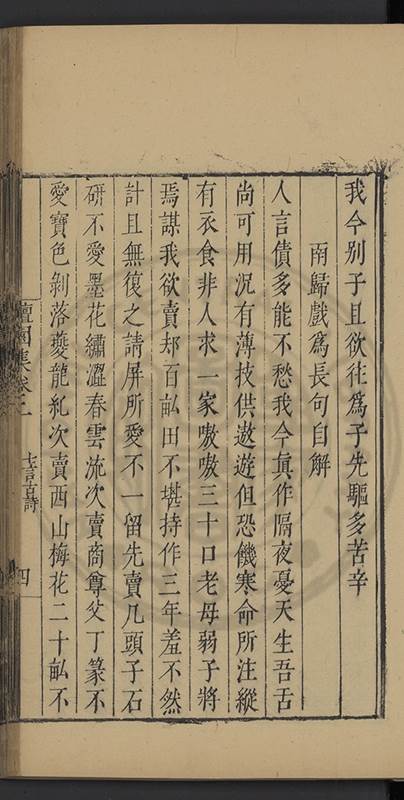 我今別子且欲往爲子先驅多苦辛
南歸戲爲長句自解
人言債多能不愁我今眞作隔夜憂天生吾舌
尚可用況有薄技供遨遊但恐饑寒命所注縱
有衣食非人求一家嗷嗷三十口老母弱子將
焉謀我欲賣却百畝田不堪持作三年羞不然
計且無復之請屏所愛不一留先賣几頭子石
研不愛墨花繡澀春雲流次賣商尊父丁篆不
愛寶色剝落夔龍虬次賣西山梅花二十畝不
檀園集卷二 七言古詩 四